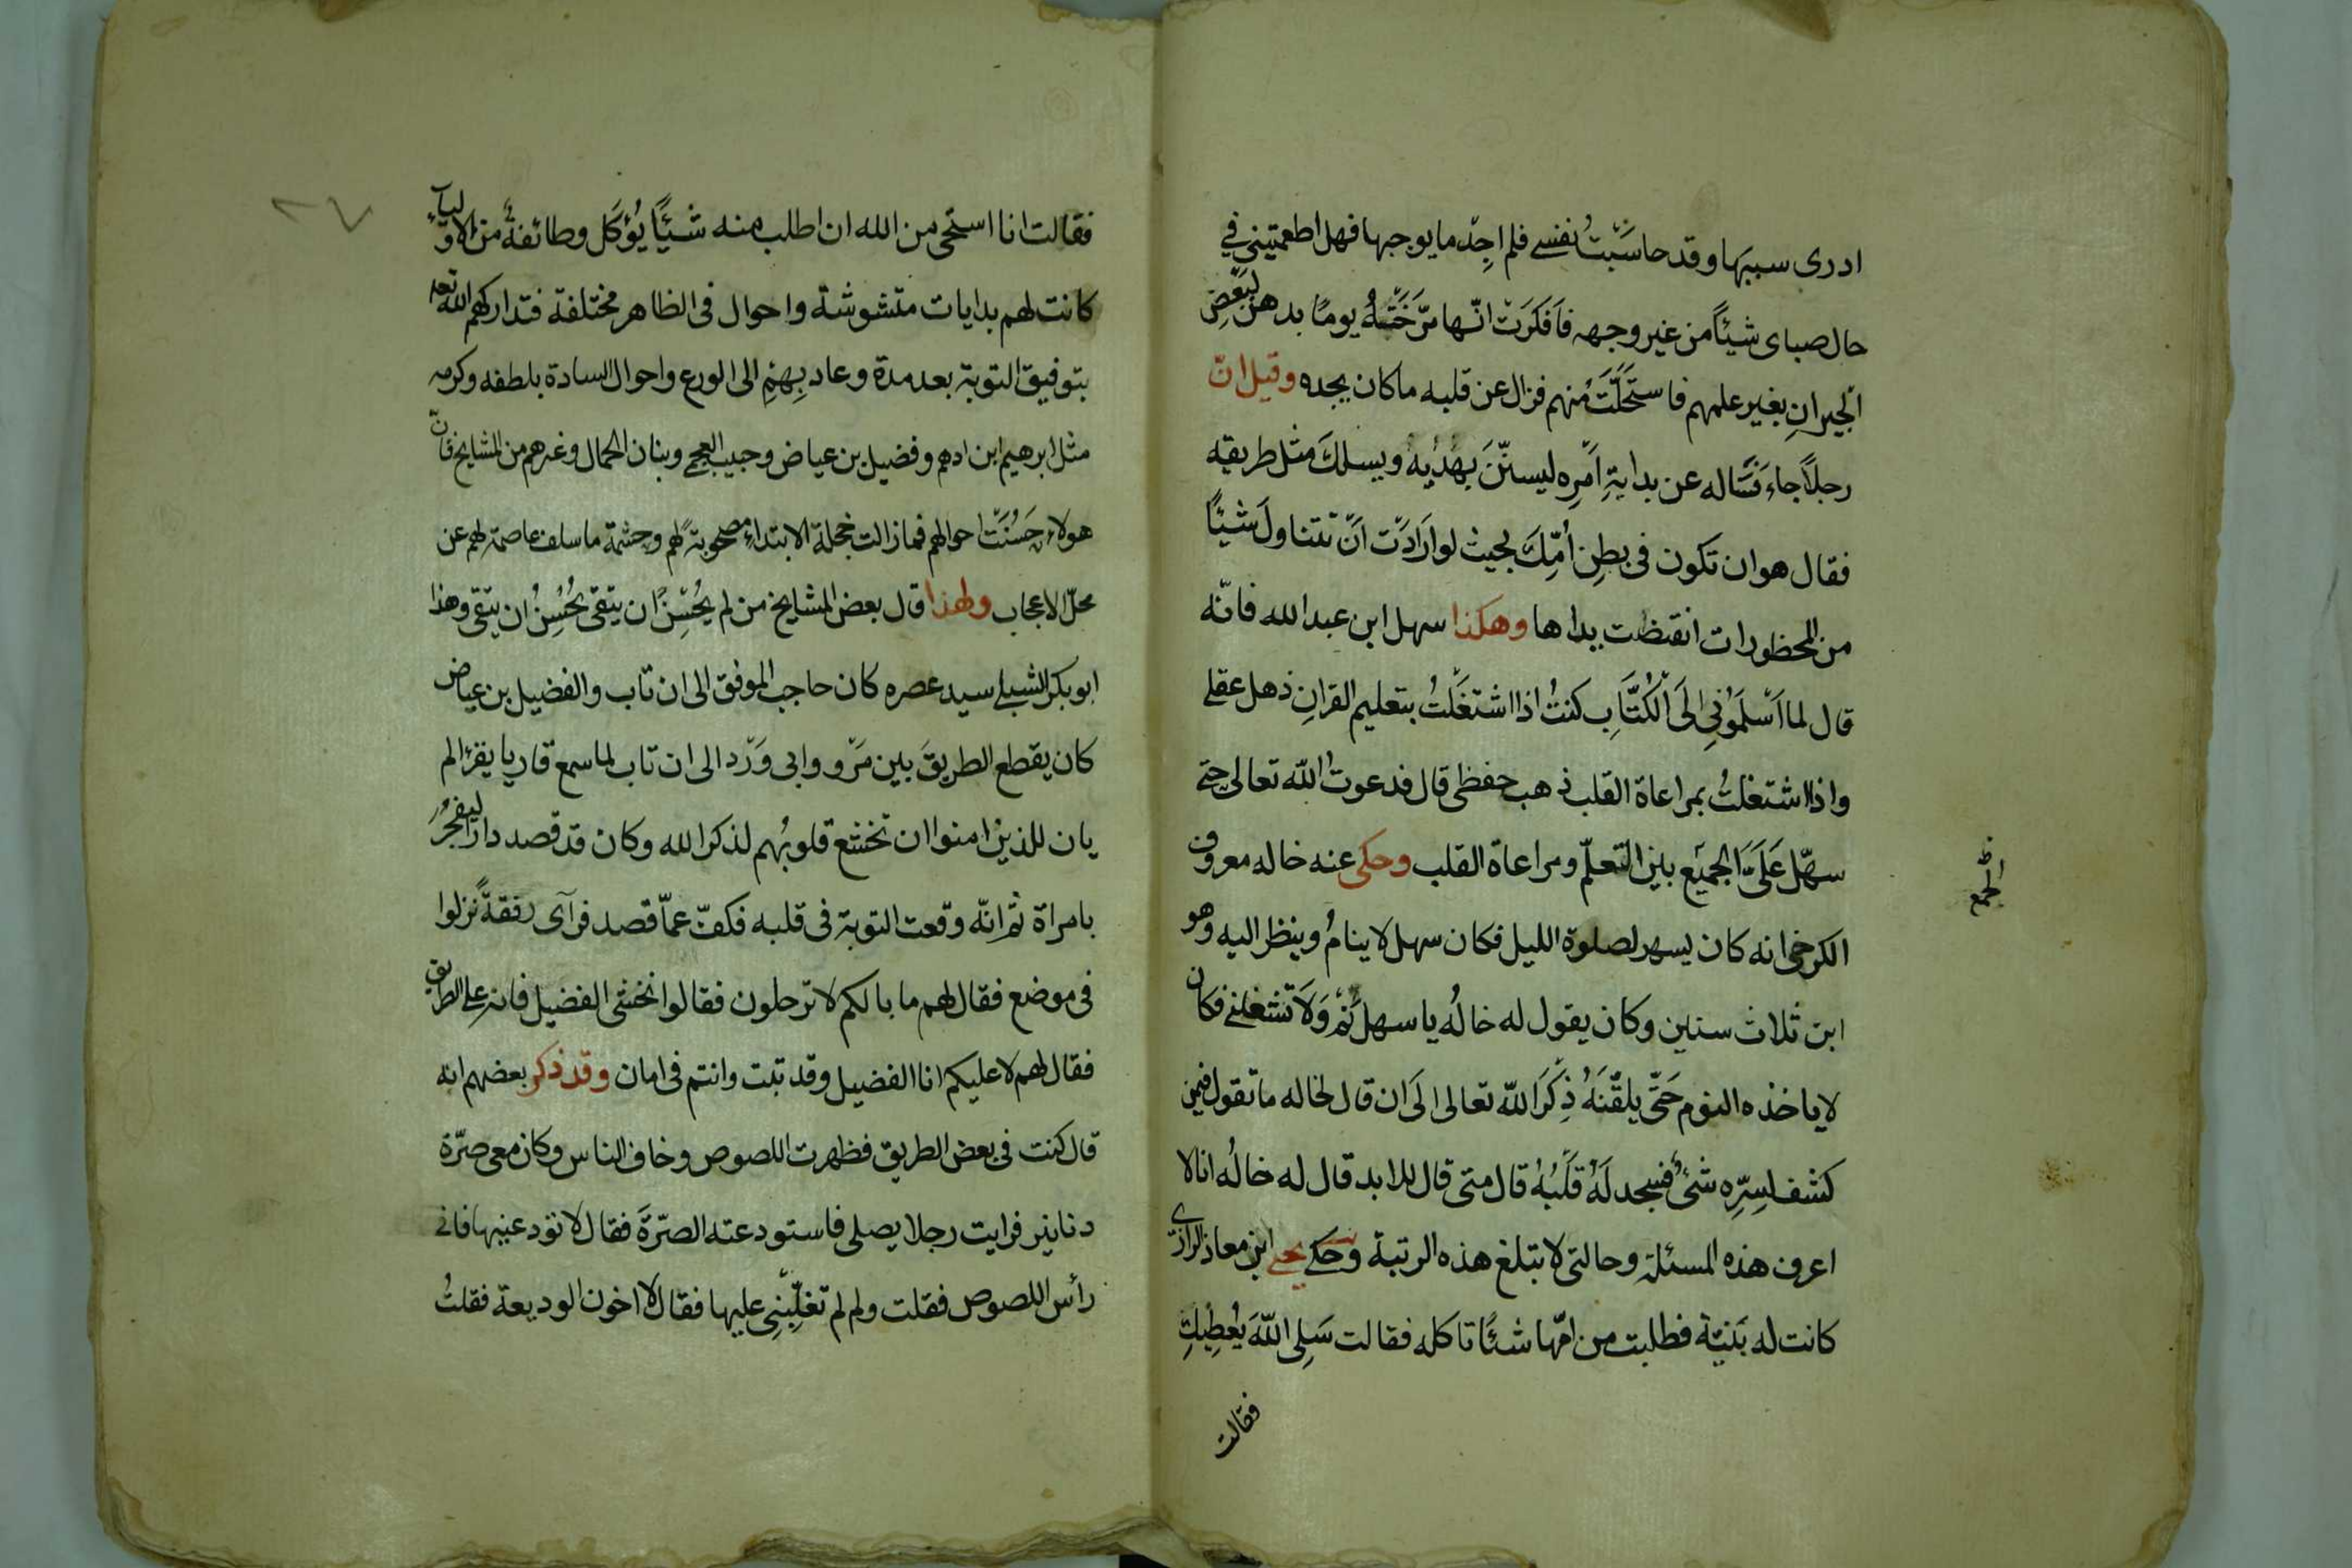 ادرى سببها وقد حاسَبْتُ نفسى فلم اجِدْ ما يوجبها فهل اطعمتينى فى
حال صباى شيئًا من غير وجهه فَافكَرَتْ انّها مَرَّخَتْهُ يومًا بدهن لبَعْضِ
الجيرانِ بغير علمهم فاستَحَلَّتْ مُنهم فزال عن قلبه ما كان يجده وقيل انّ
رجلًا جاءَ فسَاله عن بدايةِ اَمْرِه ليستنّنَ بِهَدْيِهِ ويسلكَ مثل طريقه
فقال هو ان تكون فى بطِن اُمِّكَ بحيث لو ارَادَتْ اَنْ تتناولَ شيئًا
من المحظورات انقبضت يداها وهكذا سهل ابن عبد الله فانّه
قال لما اَسْلَمُونِى اِلَى الْكُتَّابِ كنتُ اذا اشتغَلْتُ بتعليم القرانِ ذهل عقلى
واذا اشتغلتُ بمراعاة القلب ذهب حفظى قال فدعوتُ اللّه تعالى حتى
سهّل عَلَىَّ الجمَيْع بين التّعلّم ومراعاة القلب وحكى عنه خاله معروف
الجمع
الكرخى انه كان يسهر لصلوة الليل فكان سهل لا ينامُ وينظر اليه وهو
ابن ثلاث سنين وكان يقول له خالُه يا سهل نَمْ وَلَا تَشغلنى فكان
لا ياخذه النوم حَتّى يلقّنَهُ ذِكْرَ اللّه تعالى اِلَى ان قال لخاله ما تقول فيمن
كشف لسِرِّه شئٌ فسجد لَهُ قَلْبُهُ قال متى قال للابد قال له خالُه انا لا
اعرف هذه المسئلة وحالتى لا تبلغ هذه الرتبة وحكى يحيى ابن معاذ الرازى
كانت له بَنيّة فطلبت من امّها شئًا تاكله فقالت سَلِى اللّهَ يُعْطِيْكِ
فقالت
٢٧
فقالت انا استحى من الله ان اطلب منه شيئًا يُؤكَل وطائفةٌ من الاولياء
كانت لهم بدايات متشوشة واحوال فى الظاهر مختلفة فتداركهم الله تعالى
بتوفيق التوبة بعد مدة وعاد بِهِمْ الى الورع واحوال السادة بلطفه وكرمه
مثل ابرهيم ابن ادهم وفضيل بن عياض وحبيب العجمى وبنان الحمال وغيرهم من المشايخ فانّ
هولاء حَسُنَتْ احوالهم فما زالت خجلة الابتداءِ مصحوبةً لهم وحشمة ما سلف عاصمة لهم عن
محلّ الاعجاب ولهذا قال بعض المشايخ من لم يُحْسِنْ ان يتقى يُحْسِنُ ان يتقى وهذا
ابو بكر الشبلى سيد عصره كان حاجب الموفق الى ان تاب والفضيل بن عياض
كان يقطع الطريقَ بين مَرْو وابى وَرْد الى ان تاب لما سمع قاريا يقرٔ الم
يان للذين امنوا ان تخشع قلوبُهم لذكر الله وكان قد قصد دارًا ليفجُرَ
بامراة ثم انّه وقعت التوبة فى قلبه فكفّ عمّا قصد فرآى رفقةً نزلوا
فى موضع فقال لهم ما بالكم لا ترحلون فقالوا نخشى الفضيل فانه على الطريق
فقال لهم لا عليكم انا الفضيل وقد تبت وانتم فى امان وقد ذكر بعضهم انه
قال كنت فى بعض الطريق فظهرت اللصوص وخاف الناس وكان معى صرّة
دنانير فرايت رجلا يصلى فاستودعته الصرّةَ فقال لا تودعنيها فانى
رأس اللصوص فقلت ولم لم تغلِّبْنِى عليها فقال لا اخون الوديعة فقلتُ